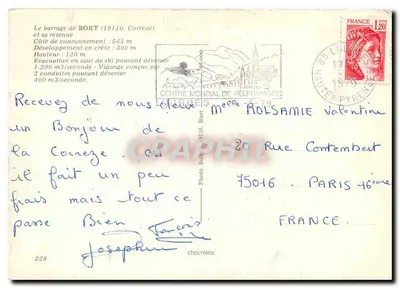 Le barrage de BORT (19110. Corrèze)
et sa retenue
Côte de couronnement : 545 m
Développement en crête : 390 m
Hauteur : 120 m
Evacuation en saut de ski pouvant déverser
1.200 m3/seconde - Vidange conçue par
2 conduits pouvant déverser
400 m3/seconde
1,20
CENTRE MONDIAL DE PÈLERINAGES
LOURDES
1979
HAUTES PYRENEES
Recevez de nous deux
un Bonjour de
la Corrèze. ou
il fait un peu
frais mais tout ce
passe Bien
François
Josephine
Melle ROLSAMIE Valentine
20 Rue Contembert
75016 - PARIS 16ème
FRANCE.
228